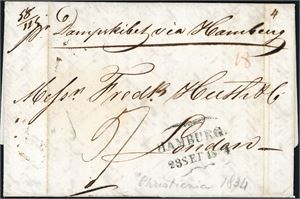 6
4
Dampskibet via Hamburg
Messrs Fredk Huth & Co
London
HAMBURG.
23 SEP
Christiania 1834